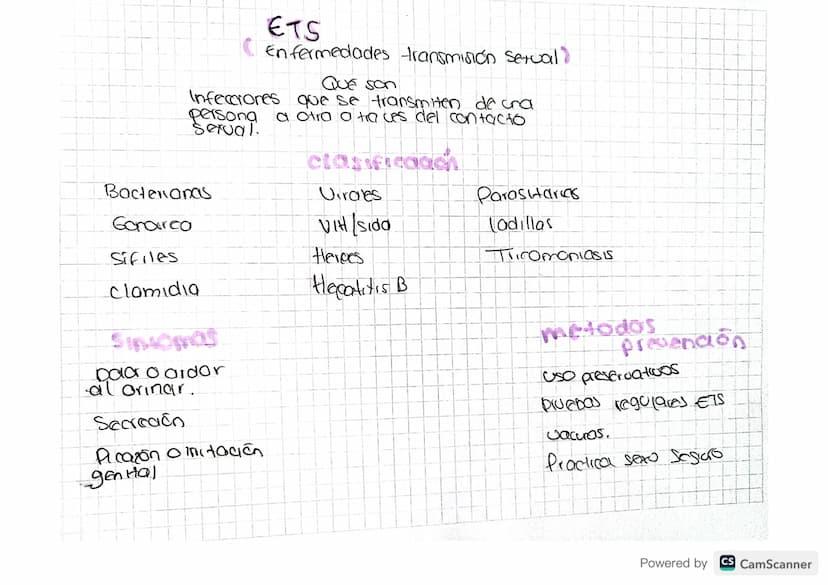 ETS
(Enfermedades transmisión sexual)
Qué son
Infecciones que se transmiten de una
persona a otra a través del contacto
sexual.
Clasificación
Bacterianas
Virales
Parasitarias
Gonorrea
VIH/sida
ladillas
Sífiles
Herpes
Tricomoniasis
Clamidia
Hepatitis B
Síntomas
métodos
prevención
ardor
al orinar.
Secreción
Picazón o irritación
genital
uso preservativos
pruebas regulares ETS
vacunas.
Practica sexo seguro
Powered by CS CamScanner